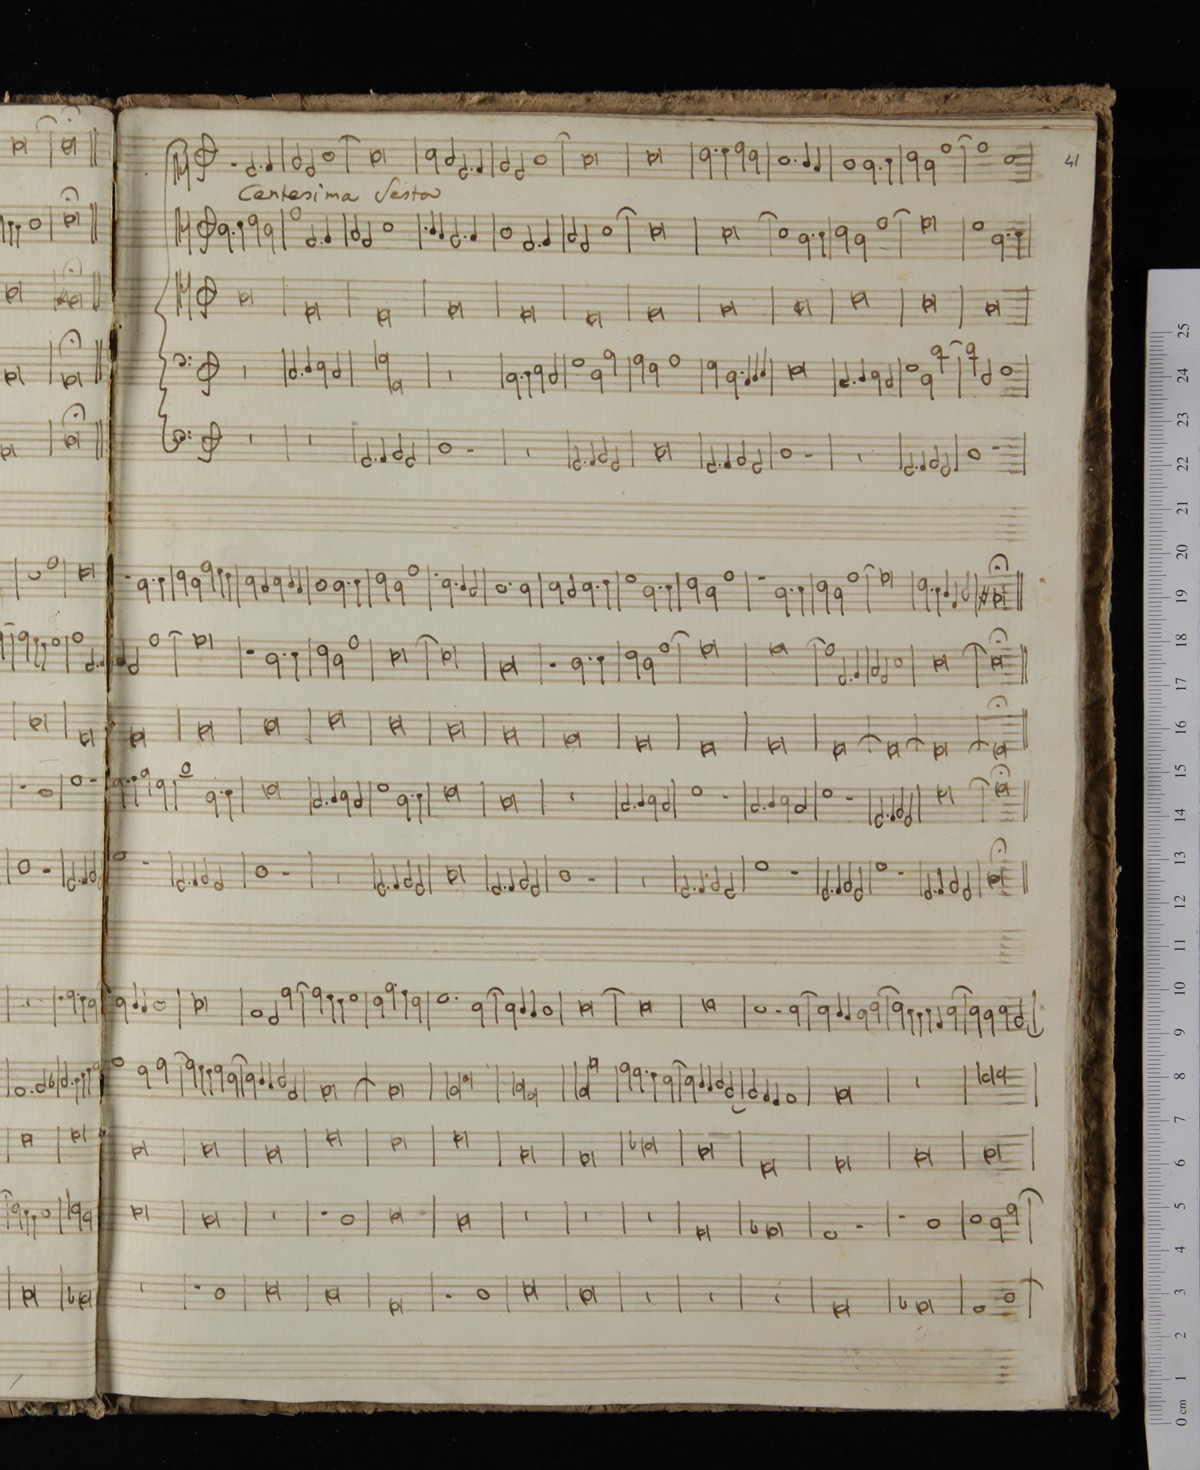 41
Centesima Sesta
25
24
23
22
21
20
19
18
17
16
15
14
13
12
11
10
9
8
7
6
5
4
3
2
1
0 cm